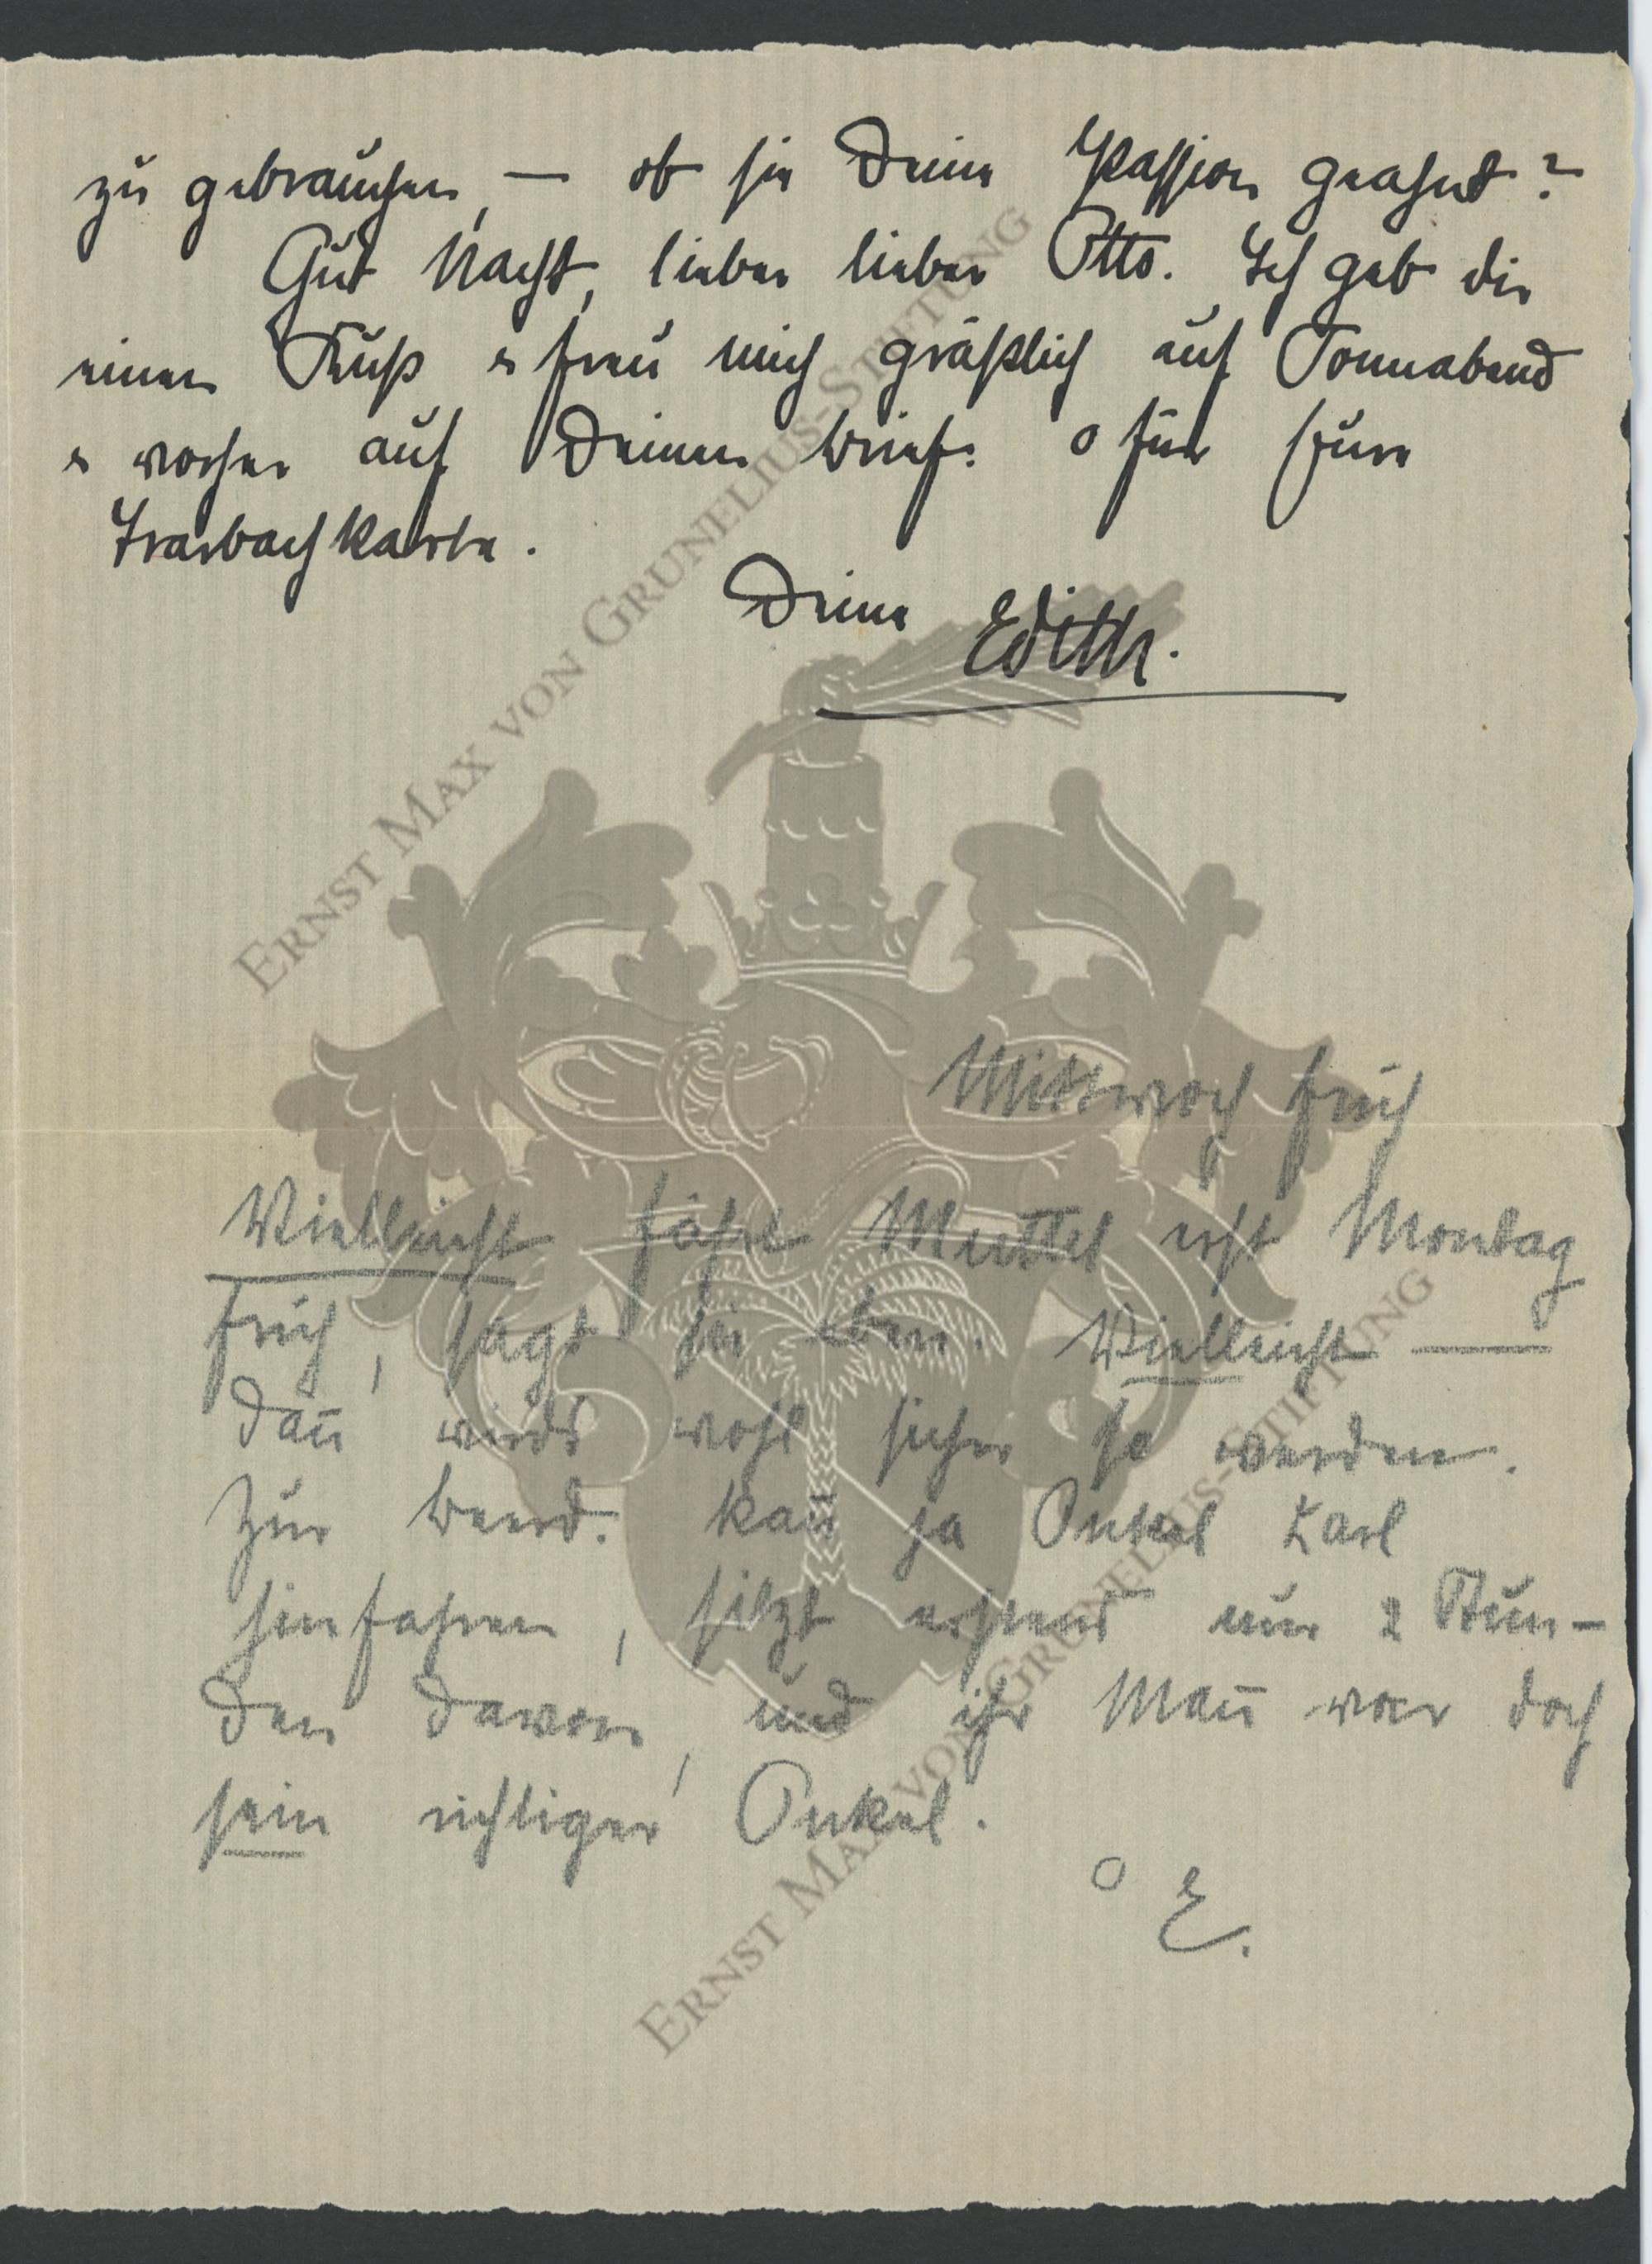 zu gebrauchen, — ob sie Deine Passion geahnt?
Gut Nacht, lieber lieber Otto. Ich geb dir
einen Kuß & freu mich gräßlich auf Sonnabend
& vorher auf Deinen Brief. o für
Trarbachkarte.
Deine Edith.
Mittwoch früh
Vielleicht fährt Muttel erst Montag
früh, sagt sie eben. Vielleicht —
dan̄ wirds wohl sicher so werden.
Zur Beerd. kan̄ ja Onkel Karl
hinfahren, sitzt nur 2 Stun-
den davon, und ihr Man̄ war doch
sein richtiger Onkel.
o E.
ERNST MAX VON GRUNELIUS-STIFTUNG
ERNST MAX VON GRUNELIUS-STIFTUNG